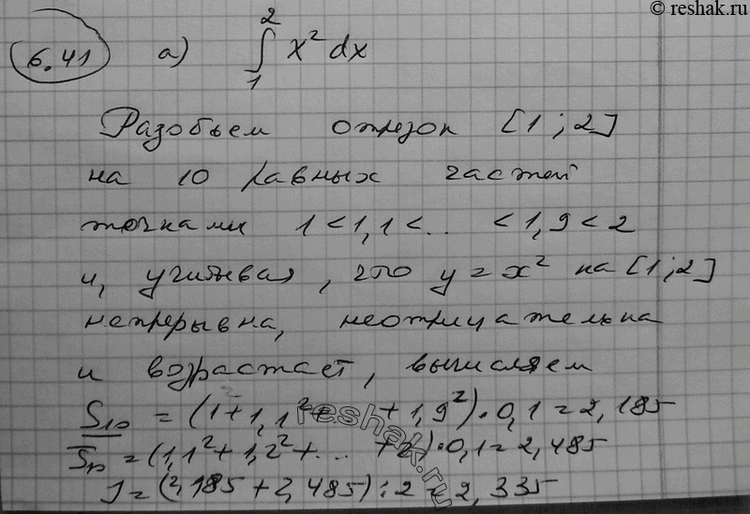 © reshak.ru
6.41 а) ∫₁² x² dx
Разобьем отрезок [1; 2]
на 10 равных частей
точками 1 < 1,1 < ... < 1,9 < 2
и, учитывая, что y = x² на [1; 2]
непрерывна, неотрицательна
и возрастает, вычисляем
S₁₀ = (1 + 1,1² + ... + 1,9²) · 0,1 = 2,185
S₁₀ = (1,1² + 1,2² + ... + 2²) · 0,1 = 2,485
J = (2,185 + 2,485) : 2 = 2,335
reshak.ru